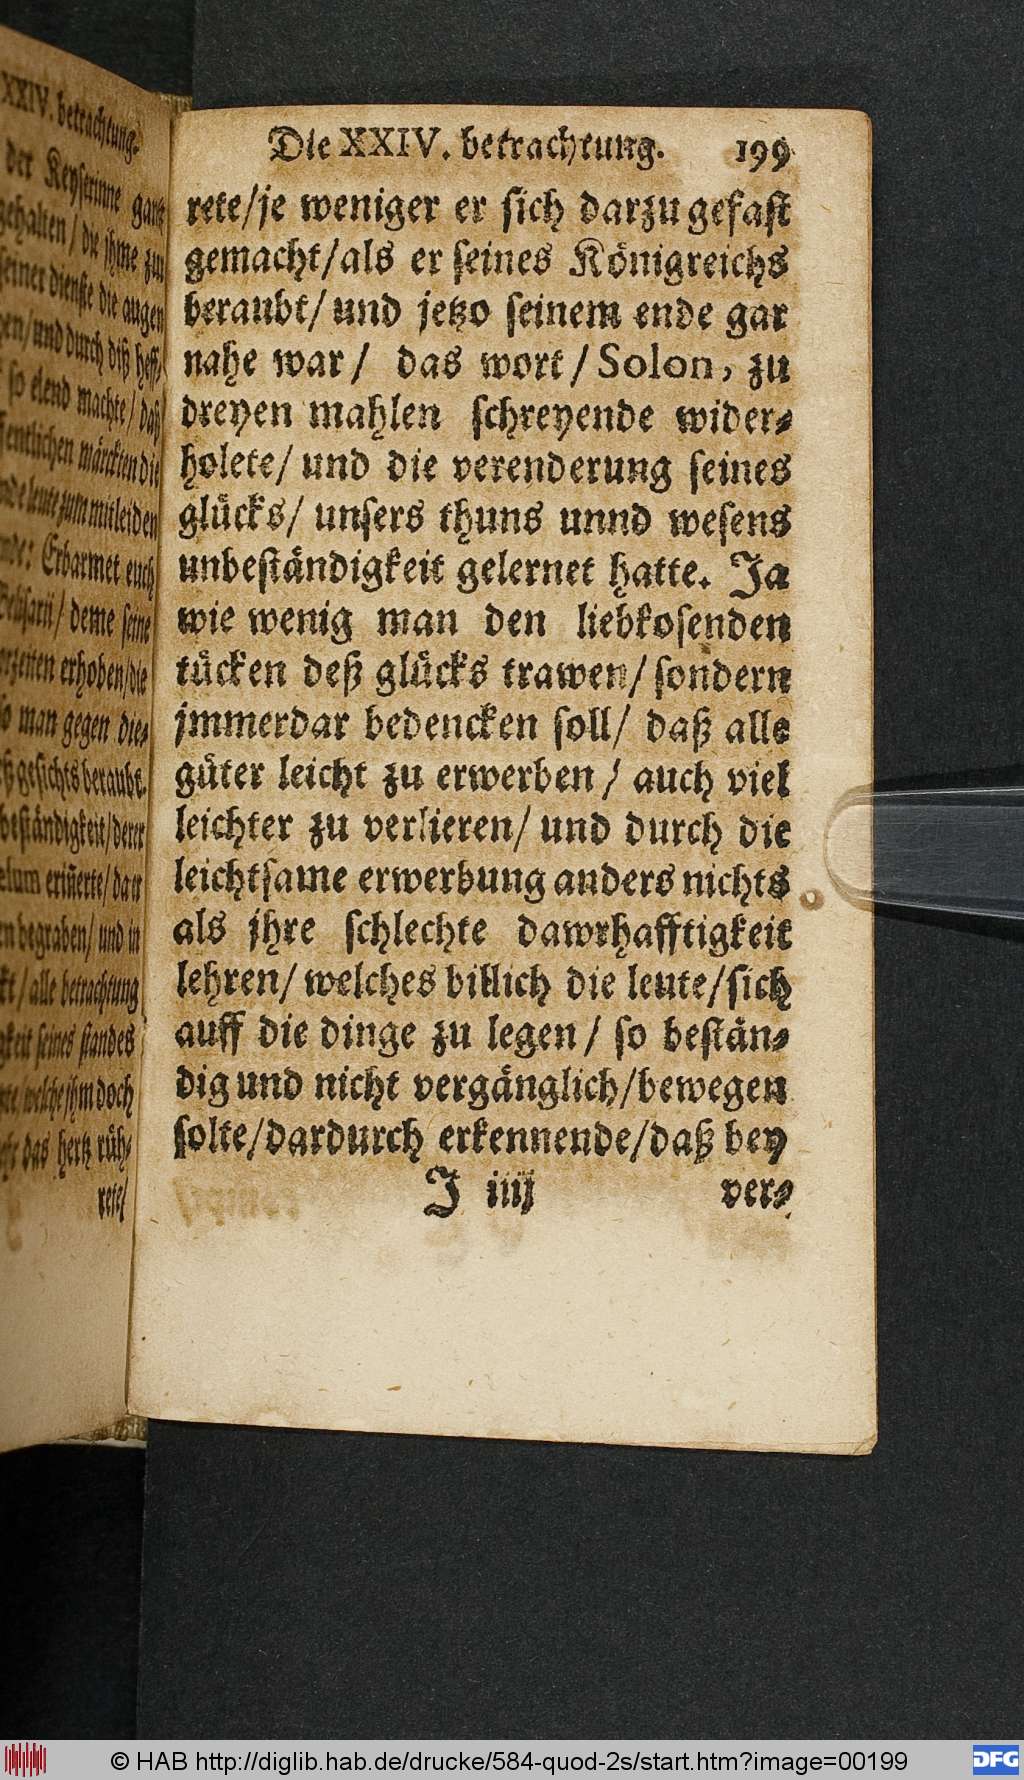 XXIV. betrachtung.
der Keyserinne gantz
gehalten / die ihme zu
seiner dienste die augen
und durch diß heff-
so elend machte / daß
märckten die
leute zum mitleiden
Erbarmet euch
deme seine
erhoben / die
man gegen die-
gesichts beraubt.
derer
erinerte / da er
begraben / und in
alle betrachtung
seines standes
welche jhm doch
das hertz rüh-
rete /
Die XXIV. betrachtung. 199
rete / je weniger er sich darzu gefast
gemacht / als er seines Königreichs
beraubt / und jetzo seinem ende gar
nahe war / das wort / Solon, zu
dreyen mahlen schreyende wider-
holete / und die verenderung seines
glücks / unsers thuns unnd wesens
unbeständigkeit gelernet hatte. Ja
wie wenig man den liebkosenden
tücken deß glücks trawen / sondern
jmmerdar bedencken soll / daß alle
güter leicht zu erwerben / auch viel
leichter zu verlieren / und durch die
leichtsame erwerbung anders nichts
als jhre schlechte dawrhafftigkeit
lehren / welches billich die leute / sich
auff die dinge zu legen / so bestän-
dig und nicht vergänglich / bewegen
solte / dardurch erkennende / daß bey
J iiij ver-
© HAB http://diglib.hab.de/drucke/584-quod-2s/start.htm?image=00199
DFG